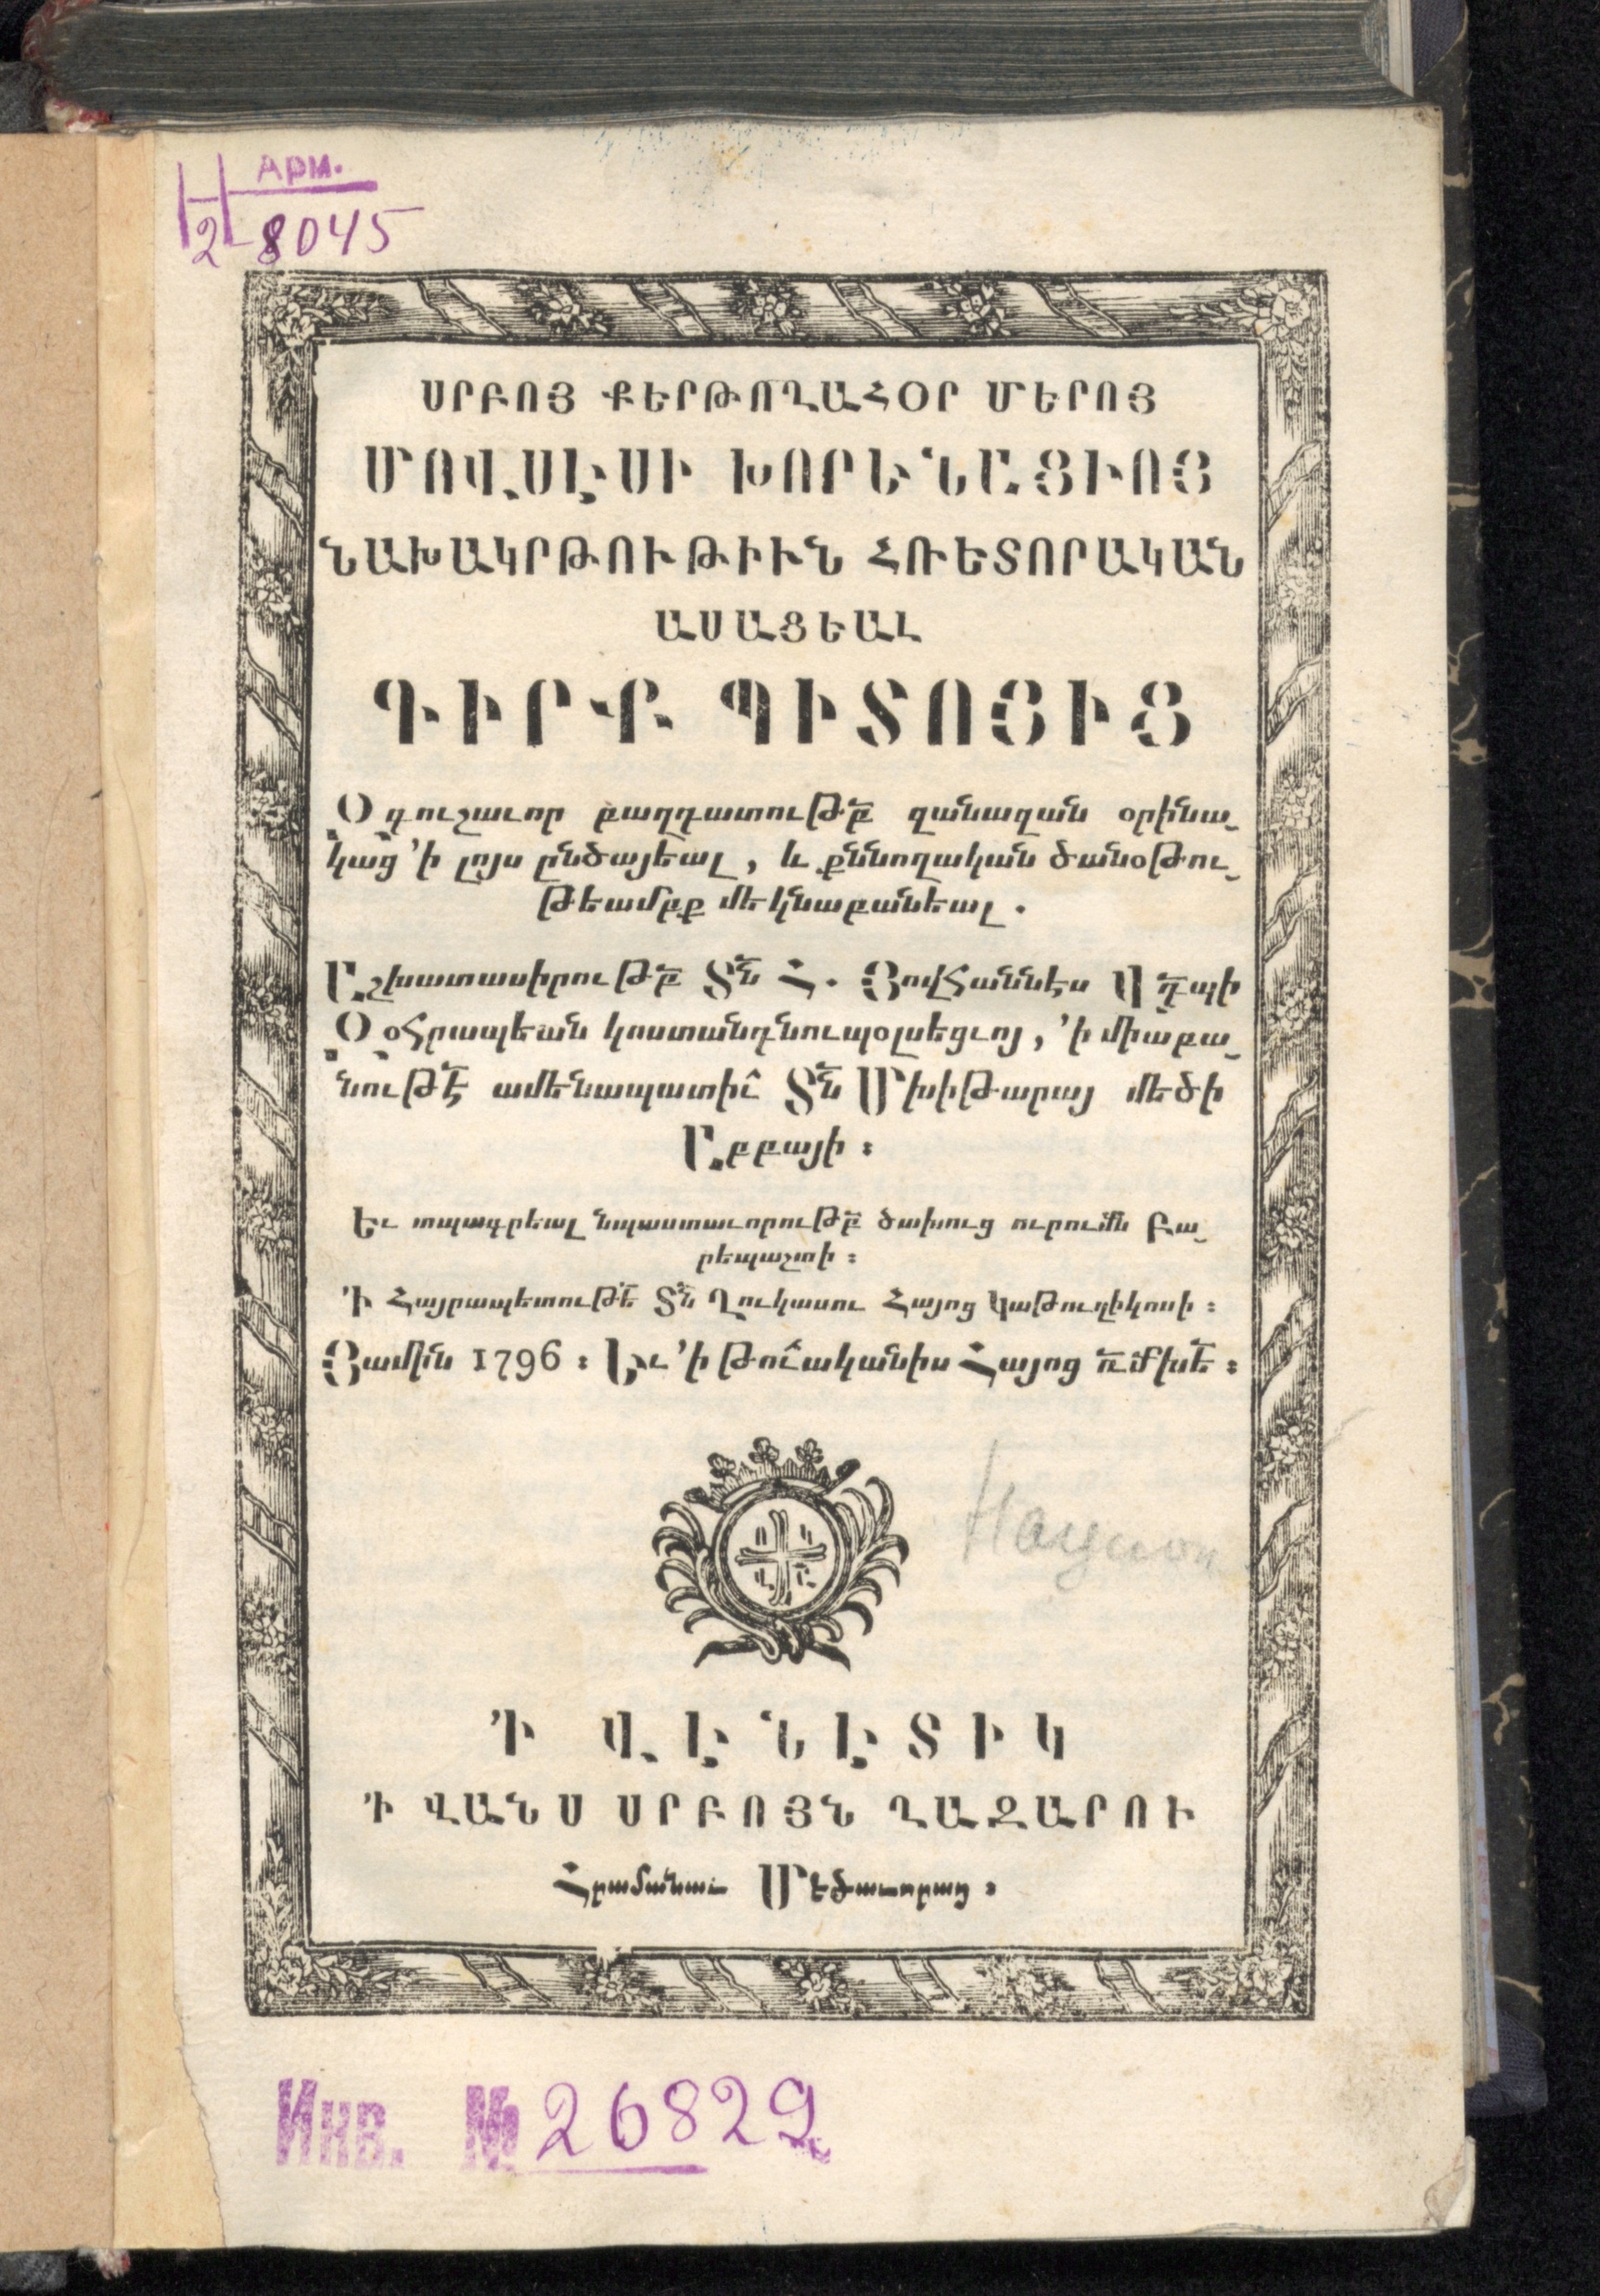 Арм.
2-8045
ՍՐԲՈՅ ՔԵՐԹՈՂԱՀՕՐ ՄԵՐՈՅ
ՄՈՎՍԷՍԻ ԽՈՐԵՆԱՑԻՈՅ
ՆԱԽԱԿՐԹՈՒԹԻՒՆ ՀՌԵՏՈՐԱԿԱՆ
ԱՍԱՑԵԱԼ
ԳԻՐՔ ՊԻՏՈՅԻՑ
Զգուշաւոր բաղդատութբ̃ զանազան օրինա֊
կաց ՚ի լոյս ընծայեալ, և քննողական ծանօթու֊
թեամբք մեկնաբանեալ.
Աշխատասիրութբ̃ Տն̃ Հ. Յովհաննէս Վդ̃պի
Զօհրապեան կոստանդնուպօլսեցւոյ, ՚ի միաբա֊
նութէ̃ ամենապատիւ̃ Տն̃ Մխիթարայ մեծի
Աբբայի։
Եւ տպագրեալ նպաստաւորութբ̃ ծախուց ուրումն̃ Բա֊
րեպաշտի։
՚Ի Հայրապետութե̃ Տն̃ Ղուկասու Հայոց Կաթուղիկոսի։
Յամին 1796։ Եւ ՚ի թուականիս Հայոց ռմխե̃։
՚Ի ՎԷՆԷՏԻԿ
՚Ի ՎԱՆՍ ՍՐԲՈՅՆ ՂԱԶԱՐՈՒ
Հրամանաւ Մեծաւորաց։
Инв. № 26829